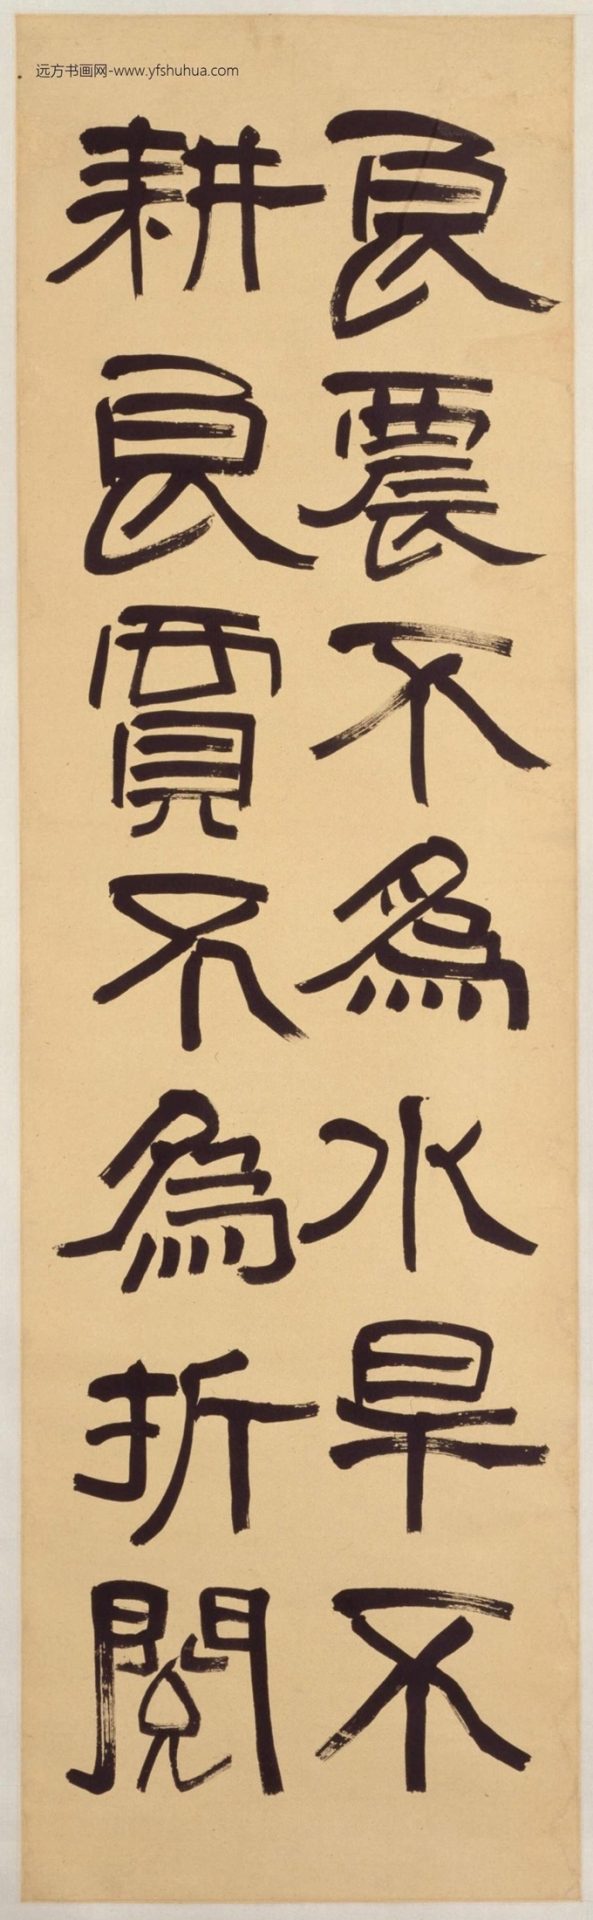 远方书画网-www.yfshuhua.com
良農不為水旱不
耕良賈不為折閱